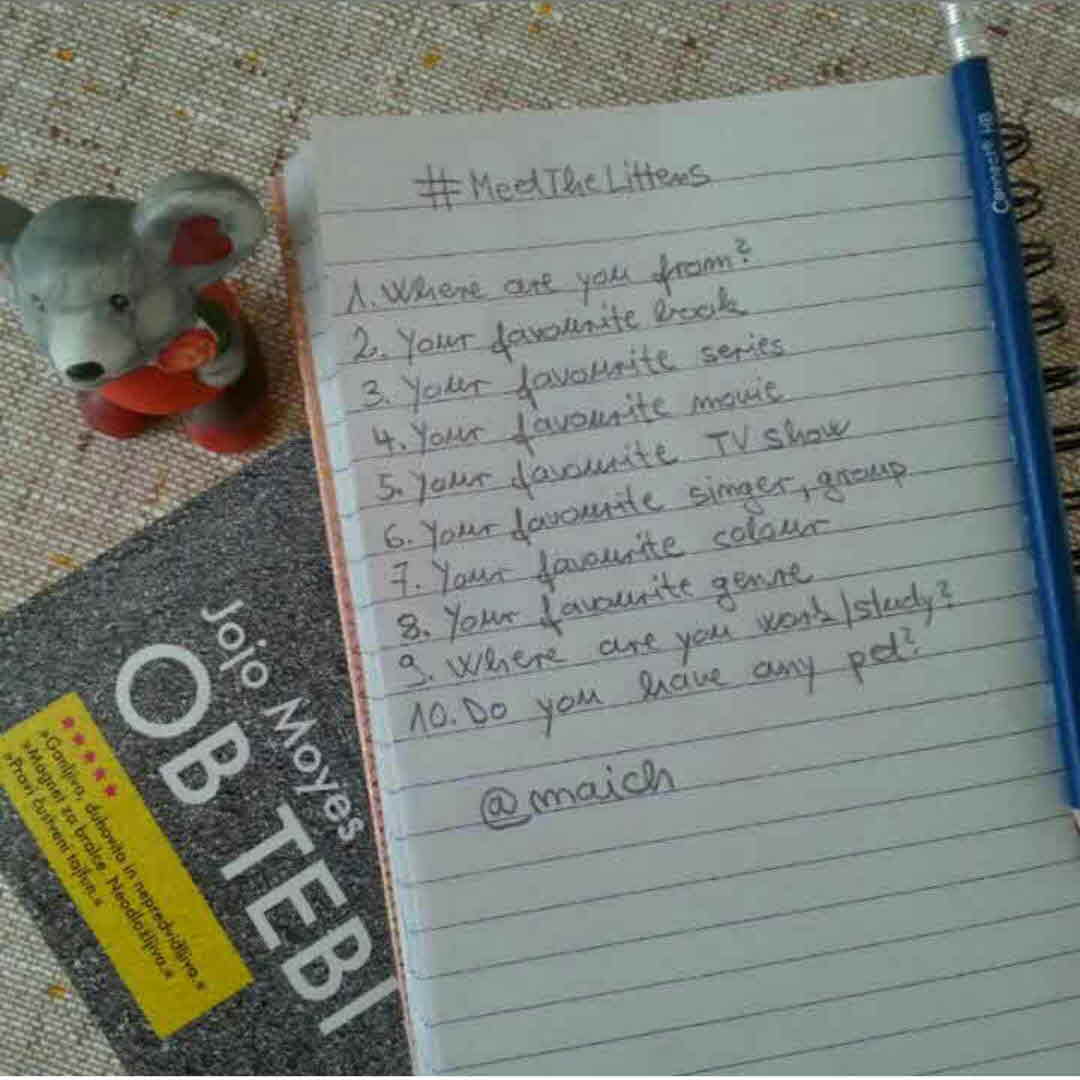 #MeetTheLittens
1. Where are you from?
2. Your favourite book
3. Your favourite series
4. Your favourite movie
5. Your favourite TV show
6. Your favourite singer, group
7. Your favourite colour
8. Your favourite genre
9. Where are you work/study?
10. Do you have any pet?
@maich
Connect HB
Jojo Moyes
OB TEBI
»Ganljivo, duhovito in nepredvidljivo.«
»Magnet za bralce. Neodložljivo.«
»Pravi čustveni tajfun.«